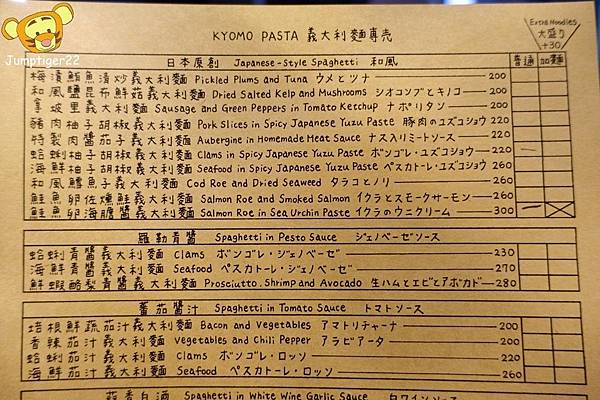 Jumptiger22
KYOMO PASTA 義大利麵専売
Extra Noodles
大盛り
+30
日本原創 Japanese-Style Spaghetti 和風
普通 加麵
梅漬鮪魚清炒義大利麵 Pickled Plums and Tuna ウメとツナ 200
和風鹽昆布鮮菇義大利麵 Dried Salted Kelp and Mushrooms シオコンブとキノコ 200
拿坡里義大利麵 Sausage and Green Peppers in Tomato Ketchup ナポリタン 200
豬肉柚子胡椒義大利麵 Pork Slices in Spicy Japanese Yuzu Paste 豚肉のユズコショウ 220
特製肉醬茄子義大利麵 Aubergine in Homemade Meat Sauce ナス入りミートソース 220
蛤蜊柚子胡椒義大利麵 Clams in Spicy Japanese Yuzu Paste ボンゴレ・ユズコショウ 220
海鮮柚子胡椒義大利麵 Seafood in Spicy Japanese Yuzu Paste ペスカトーレ・ユズコショウ 260
和風鱈魚子義大利麵 Cod Roe and Dried Seaweed タラコとノリ 260
鮭魚卵佐燻鮭義大利麵 Salmon Roe and Smoked Salmon イクラとスモークサーモン 260
鮭魚卵海膽醬義大利麵 Salmon Roe in Sea Urchin Paste イクラのウニクリーム 300
羅勒青醬 Spaghetti in Pesto Sauce ジェノベーゼソース
蛤蜊青醬義大利麵 Clams ボンゴレ・ジェノベーゼ 230
海鮮青醬義大利麵 Seafood ペスカトーレ・ジェノベーゼ 270
鮮蝦酪梨青醬義大利麵 Prosciutto, Shrimp and Avocado 生ハムとエビとアボカド 280
蕃茄醬汁 Spaghetti in Tomato Sauce トマトソース
培根鮮蔬茄汁義大利麵 Bacon and Vegetables アマトリチャーナ 200
香辣茄汁義大利麵 Vegetables and Chili Pepper アラビアータ 200
蛤蜊茄汁義大利麵 Clams ボンゴレ・ロッソ 220
海鮮茄汁義大利麵 Seafood ペスカトーレ・ロッソ 260
蒜香白酒 Spaghetti in White Wine Garlic Sauce 白ワインソース